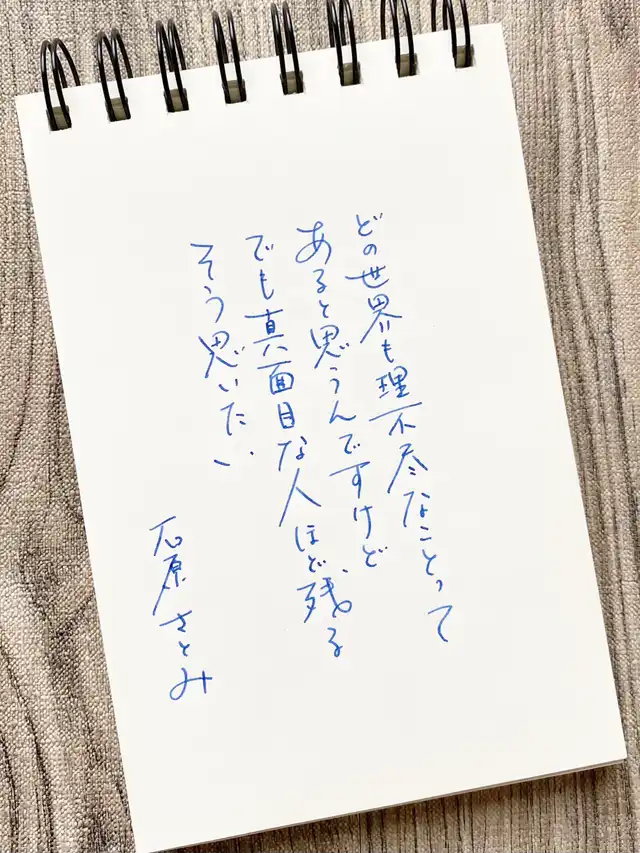 どの世界も理不尽なことって
あると思うんですけど
でも真面目な人ほど残る
そう思いたい
石原さとみ